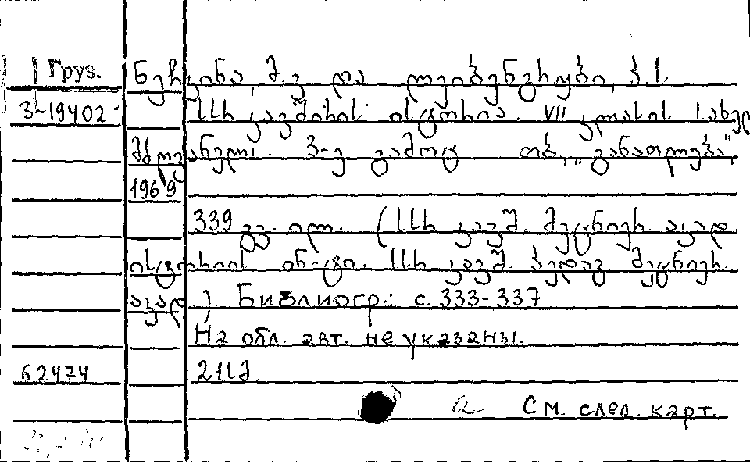 Груз. ნეჩკინა, მ. ვ. და ლეიბენგრუბი, პ. ს.
3-19402 სსრ კავშირის ისტორია. VII კლასის სახელ
მძღვანელო. 3-ე გამოც. თბ., „განათლება",
1969
339 გვ. ილ. (სსრ კავშ. მეცნიერ. აკად.
ისტორიის ინ-ტი. სსრ კავშ. პედაგ. მეცნიერ.
აკად.) Библиогр.: с. 333-337
На обл. авт. не указаны.
62474
См. след. карт.